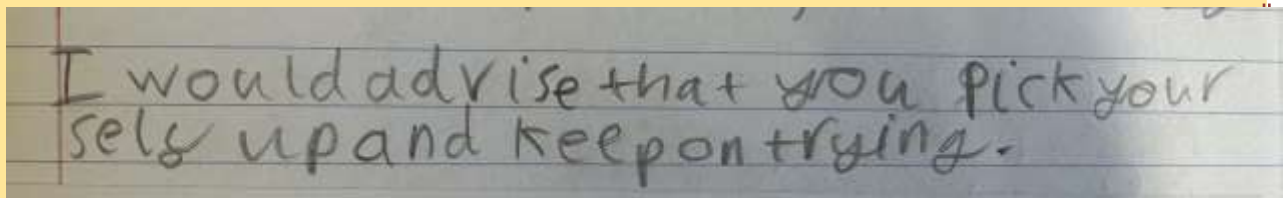 I would advise that you pick your
self up and keep on trying.